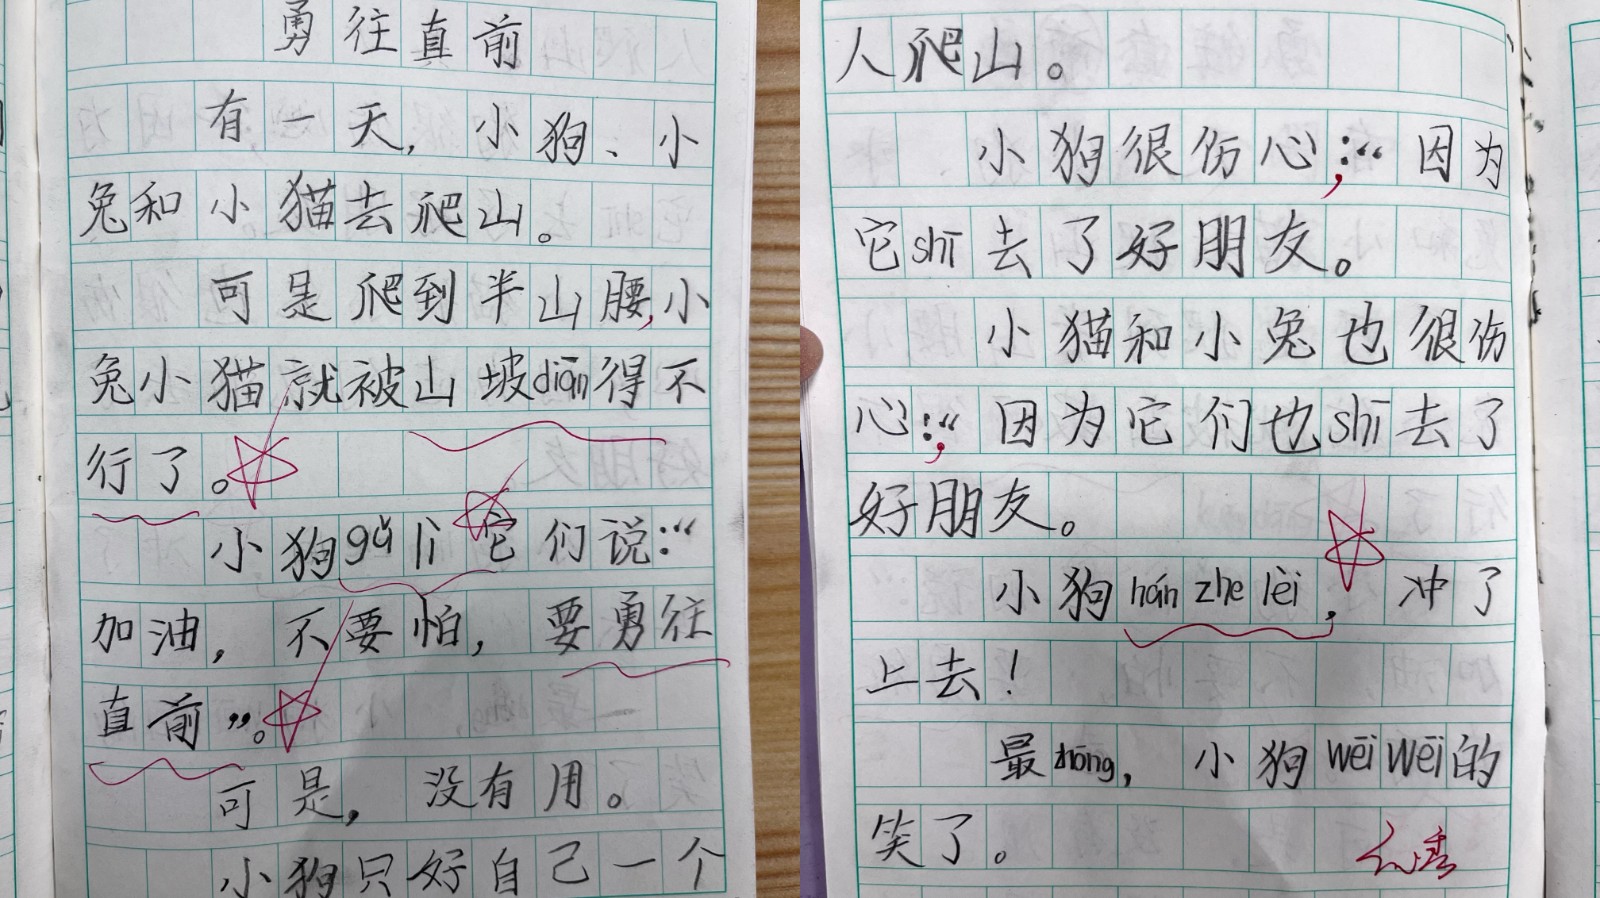 勇往直前
有一天,小狗、小
兔和小猫去爬山。
可是爬到半山腰,小
兔小猫就被山坡diān得不
行了。
小狗gǔ lì它们说:“
加油,不要怕,要勇往
直前”。
可是,没有用。
小狗只好自己一个
人爬山。
小狗很伤心:“因为
它shī去了好朋友。
小猫和小兔也很伤
心:“因为它们也shī去了
好朋友。
小狗hán zhe lèi,冲了
上去!
最zhōng,小狗wēi wēi的
笑了。